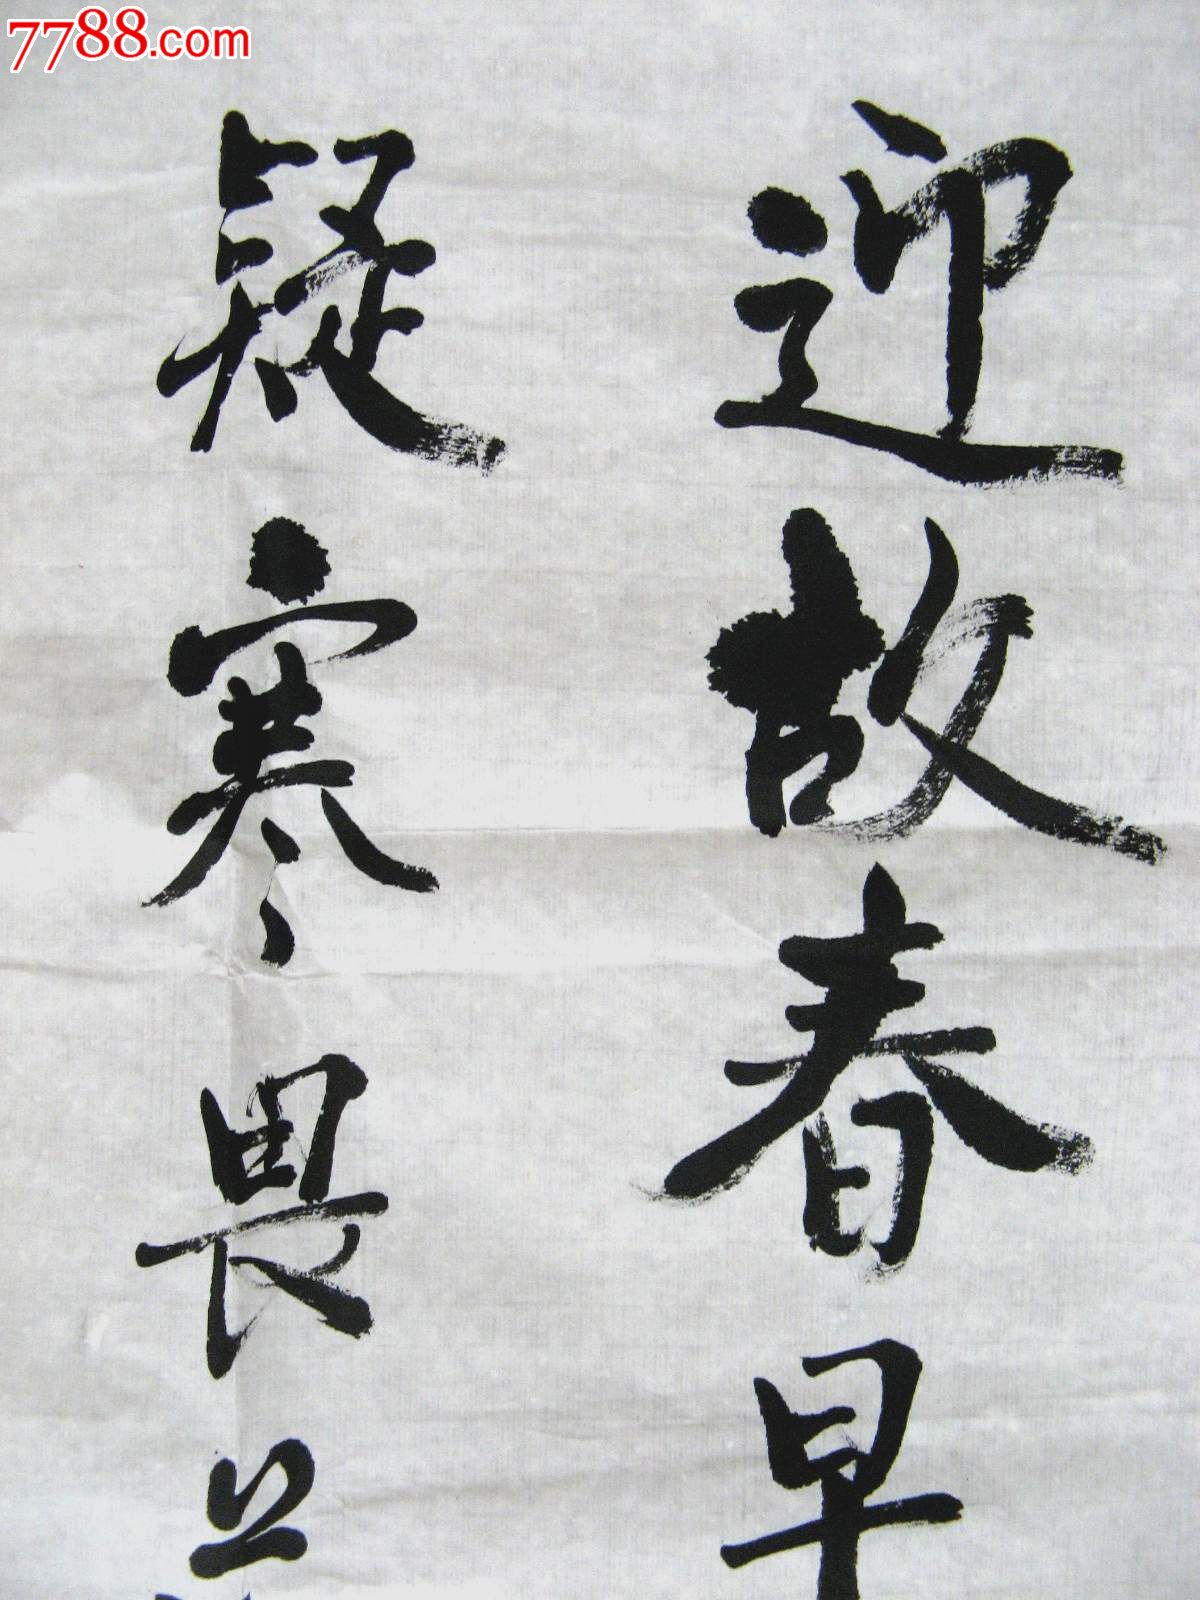 7788.com
迎故春早
疑寒畏